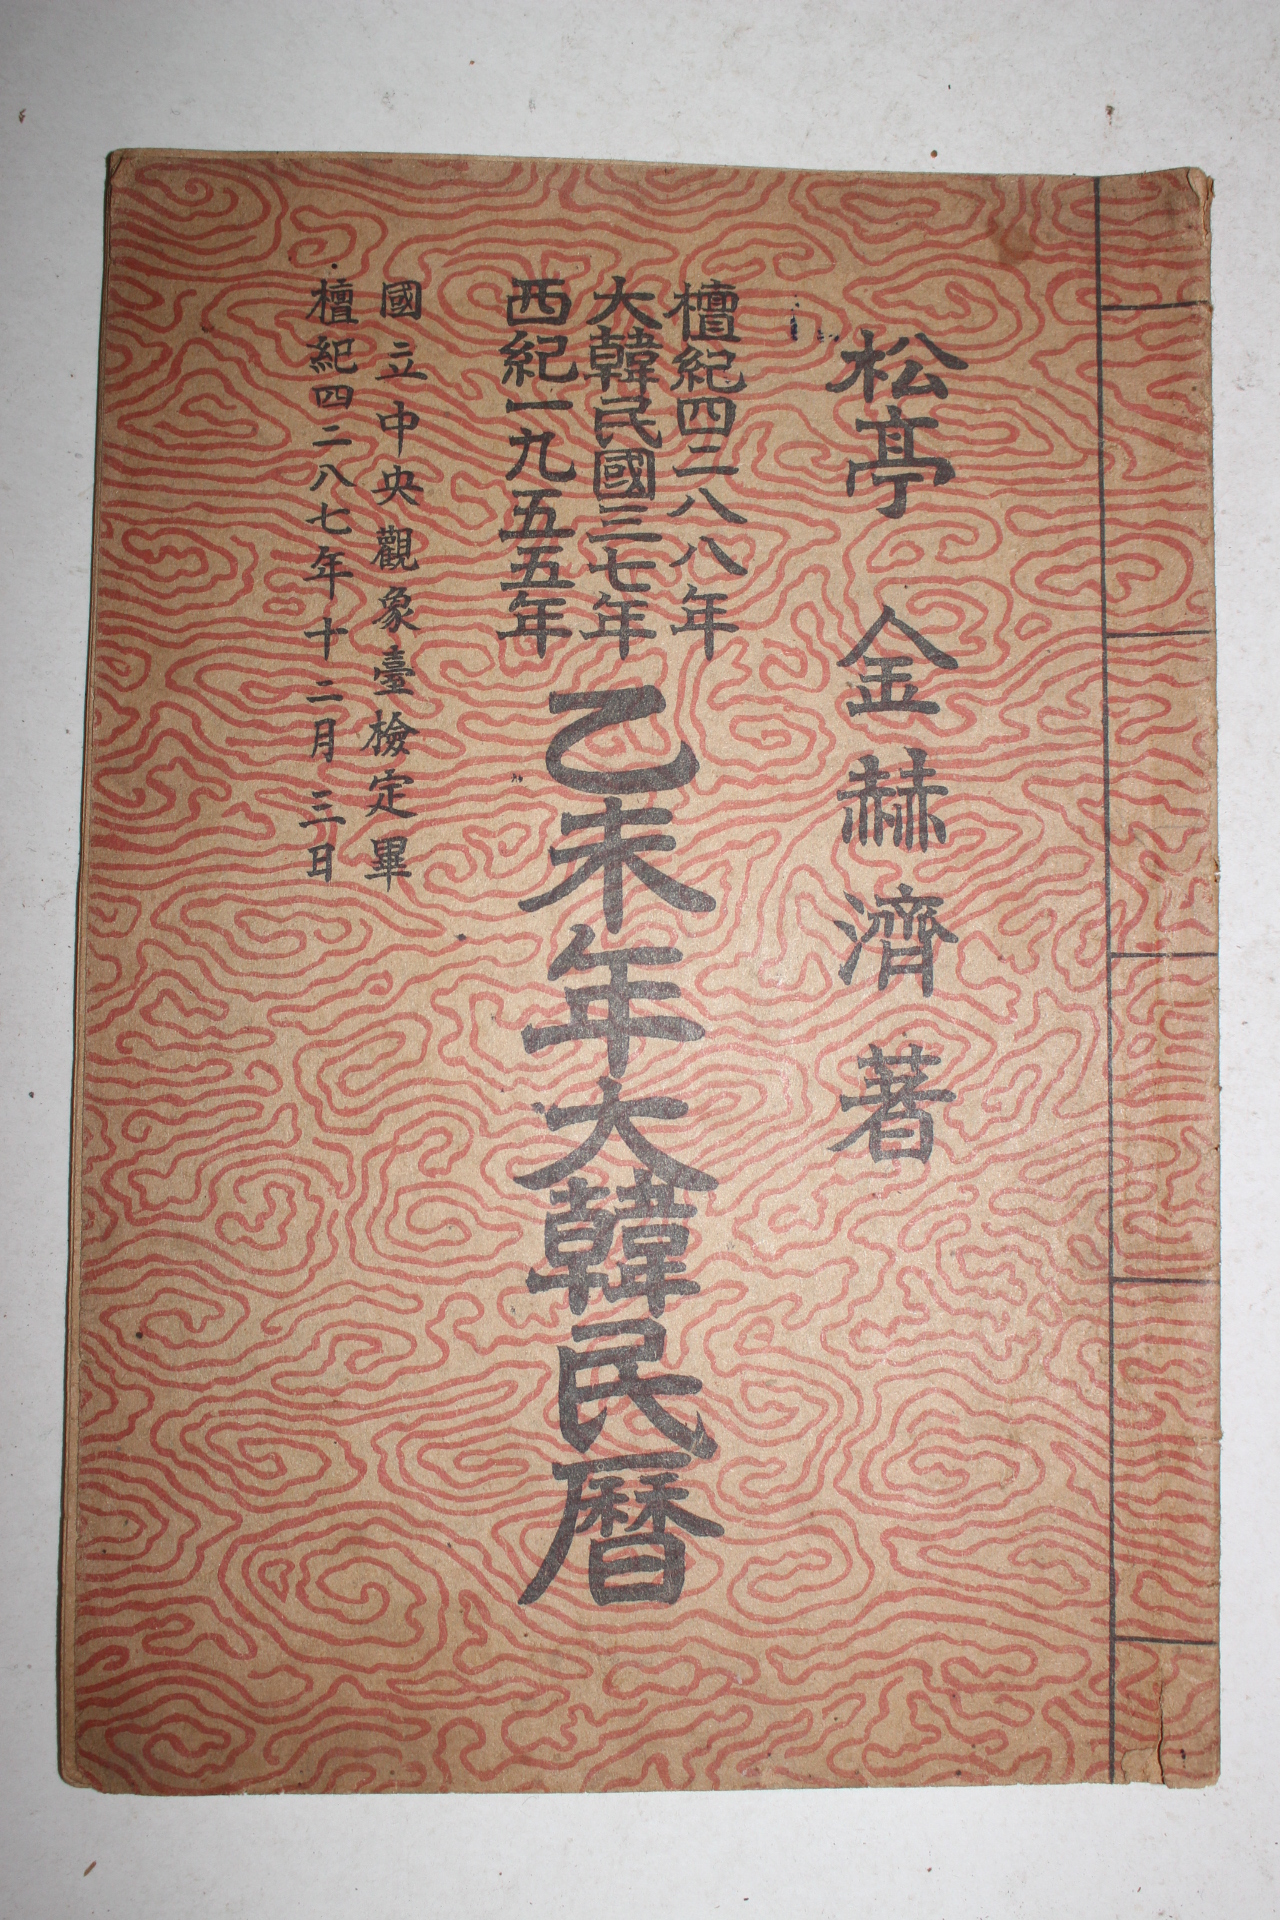 松亭 金赫濟著
檀紀四二八八年
大韓民國三七年
西紀一九五五年
乙未年大韓民曆
國立中央觀象臺檢定畢
檀紀四二八七年十二月三日